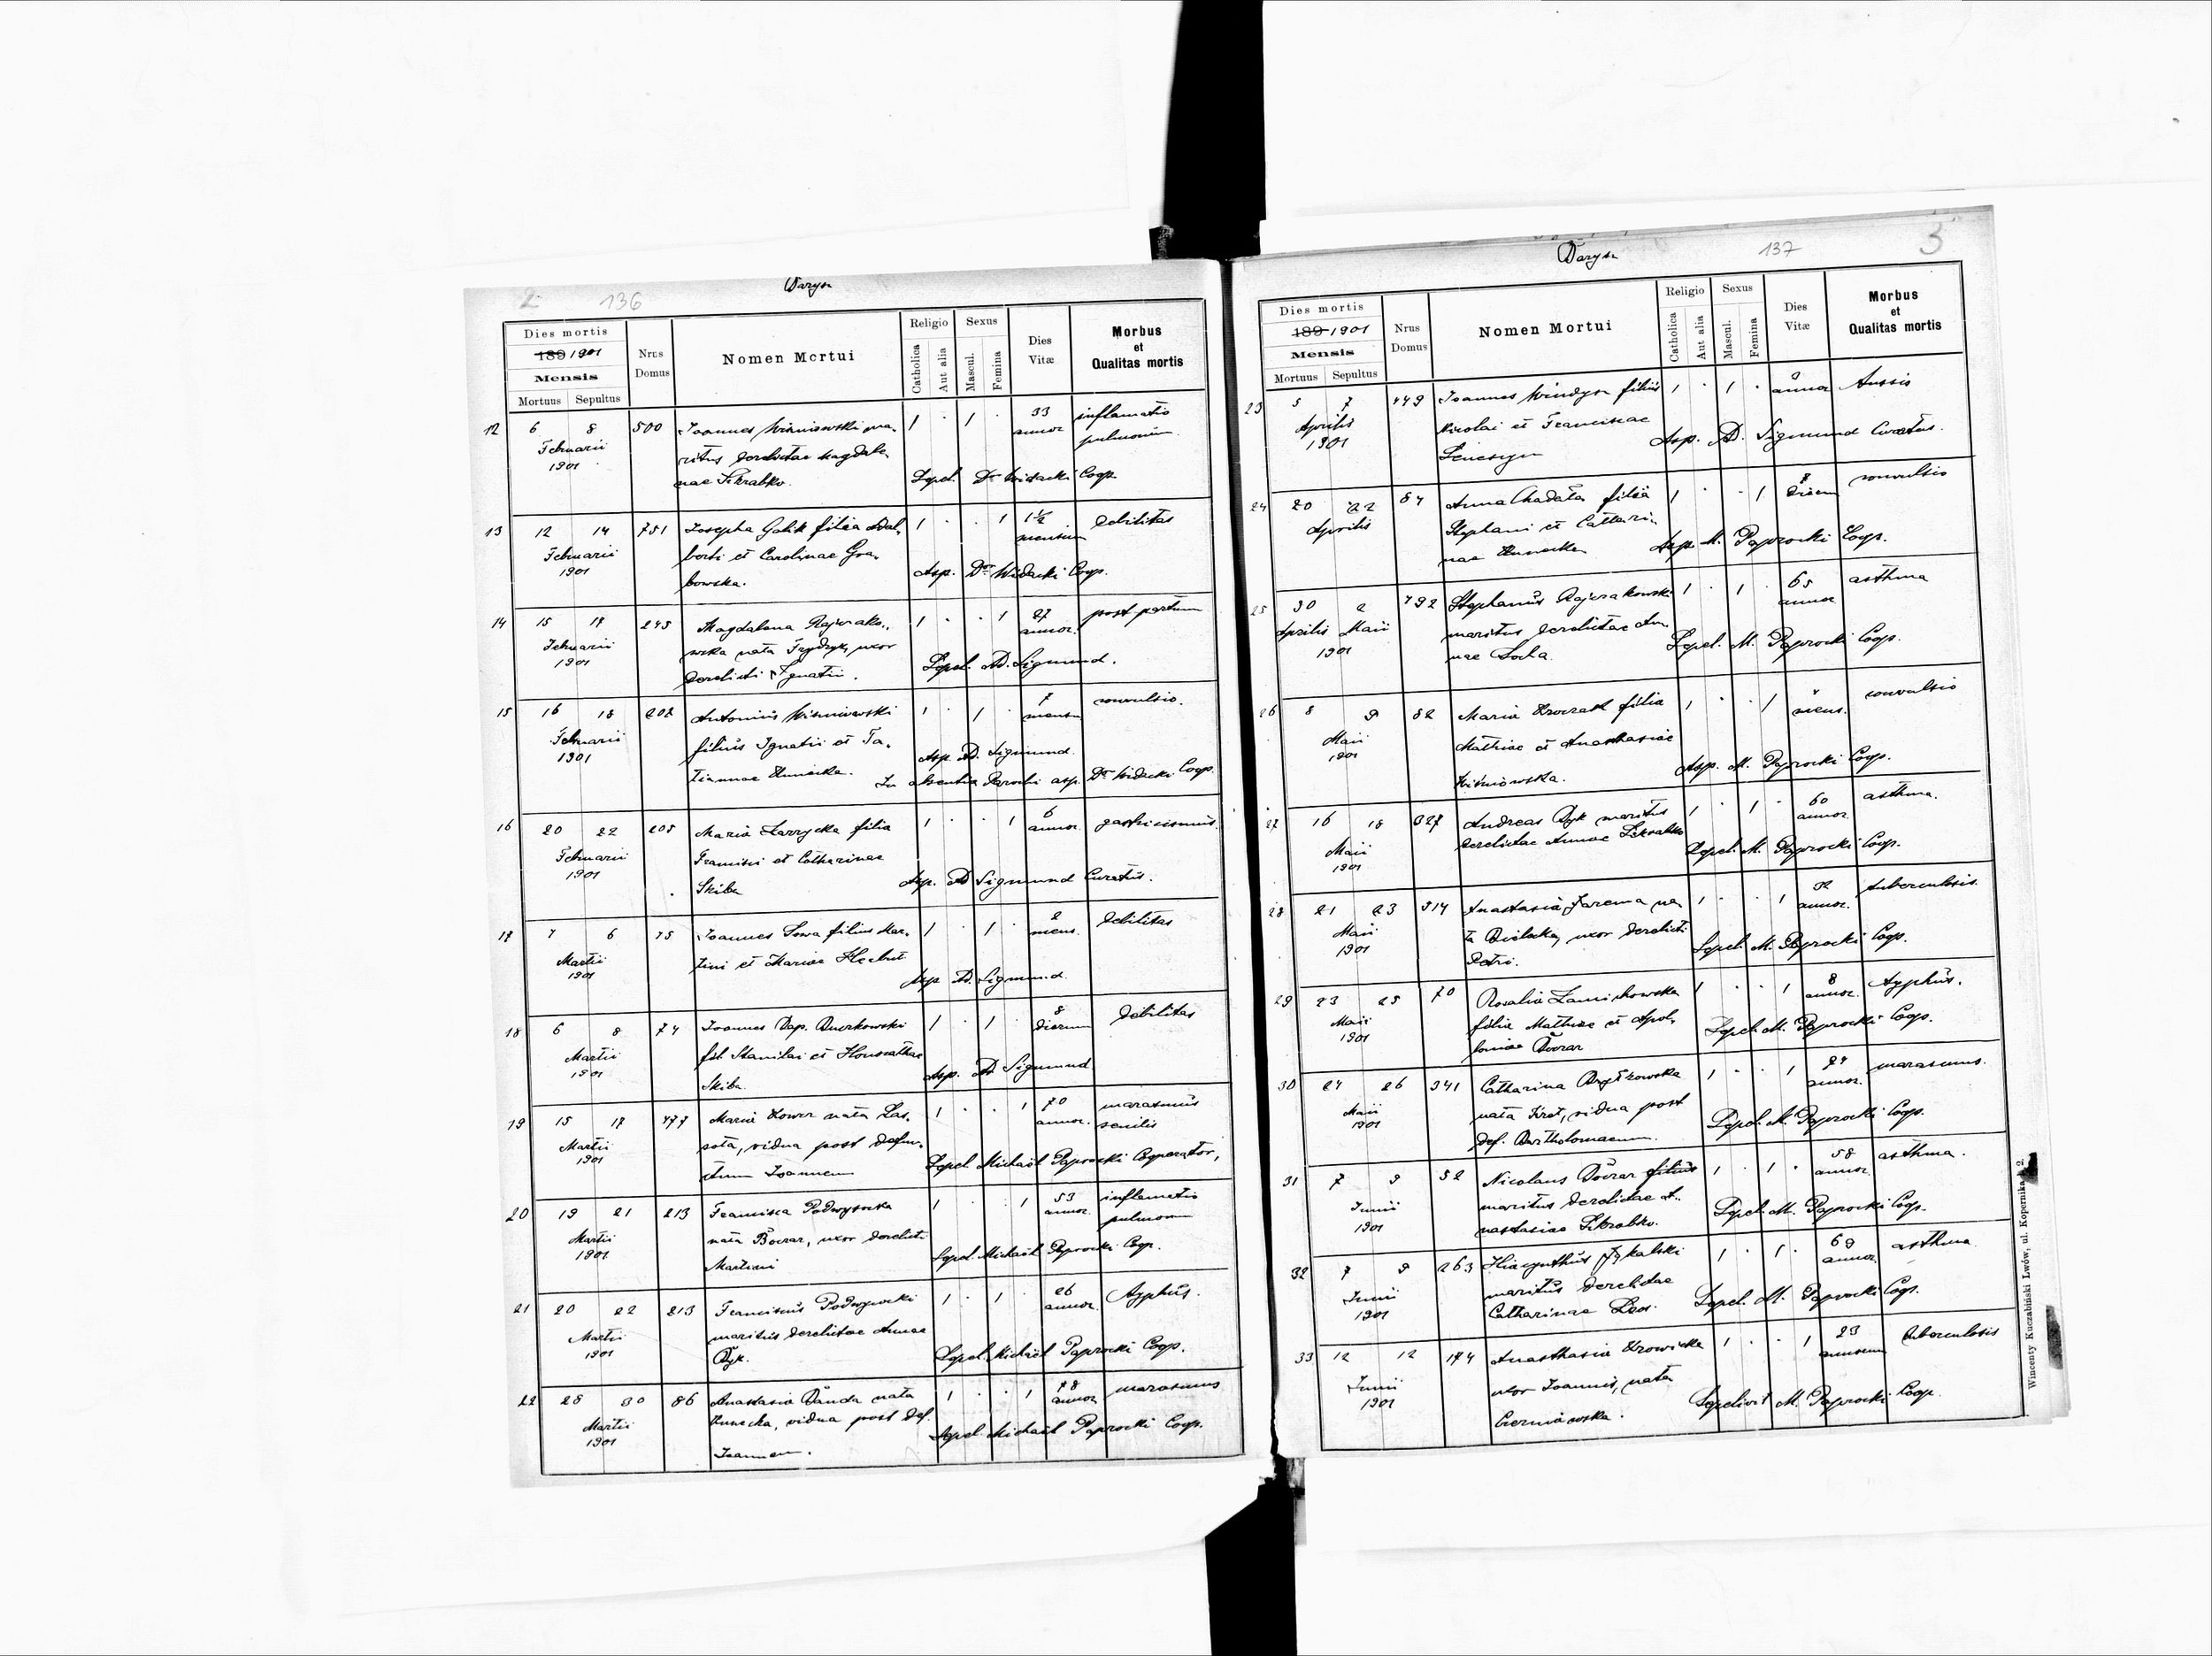 2
136
Barysz
Dies mortis
189 1901
Mensis
Mortuus Sepultus
Nrus Domus
Nomen Mortui
Religio
Catholica
Aut alia
Sexus
Mascul.
Femina
Dies Vitæ
Morbus et Qualitas mortis
12 6 8 500 Joannes Wiśniowski ma- 1 · 1 · 33 inflamatio
Februarii ritus derelictae Magdale- annor. pulmonum
1901 nae Skrabko. Sepel. Dr Widacki Coop.
13 12 14 751 Josepha Golik filia Adal- 1 · · 1 1½ debilitas
Februarii berti et Carolinae Gra- mensium
1901 bowska. Asp. Dr Widacki Coop.
14 15 17 245 Magdalena 1 · · 1 27 post partum
Februarii wska nata uxor annor.
1901 derelicti Ignatii. Sepel. AD. Sigmund.
15 16 18 202 Antonius Wiśniowski 1 · 1 · 7 convulsio.
Februarii filius Ignatii et Ta- mens.
1901 tiannae Kunicka. Asp. AD. Sigmund
In absentia Parochi asp. Dr Widacki Coop.
16 20 22 205 Maria filia 1 · · 1 6 gastricismus
Februarii Francisci et Catharinae annor.
1901 Skiba Asp. AD Sigmund Curatus.
17 7 6 75 Joannes Sowa filius Mar- 1 · 1 · 2 debilitas
Martii tini et Mariae mens.
1901 Asp AD. Sigmund
18 6 8 74 Joannes Bap. 1 · 1 · 8 debilitas
Martii fil. Stanislai et Honorathae dierum
1901 Skiba. Asp. AD Sigmund
19 15 17 477 Maria nata Las- 1 · · 1 70 marasmus
Martii sota, vidua post defun- annor. senilis
1901 ctum Joannem Sepel. Michaël Paprocki Cooperator,
20 19 21 213 Francisca Podwysocka 1 · · 1 53 inflamatio
Martii nata uxor derelicti annor. pulmonum
1901 Martini Sepel. Michaël Paprocki Coop.
21 20 22 213 Franciscus Podwysocki 1 · 1 · 26 typhus.
Martii maritus derelictae Annae annor.
1901 Dyk. Sepel. Michaël Paprocki Coop.
22 28 30 86 Anastasia nata 1 · · 1 78 marasmus
Martii Kunicka, vidua post def. annor.
1901 Joannem. Sepel. Michaël Paprocki Coop.
Barysz
137
3
Dies mortis
189 1901
Mensis
Mortuus Sepultus
Nrus Domus
Nomen Mortui
Religio
Catholica
Aut alia
Sexus
Mascul.
Femina
Dies Vitæ
Morbus et Qualitas mortis
23 5 7 449 Joannes filius 1 · 1 · annor. tussis
Aprilis Nicolai et Franciscae
1901 Asp. AD. Sigmund Curatus.
24 20 22 84 Anna Chadała filia 1 · · 1 8 dierum convulsio
Aprilis Stephani et Cathari-
nae Kunicka Asp. M. Paprocki Coop.
25 30 2 792 Stephanus 1 · 1 · 65 asthma
Aprilis Maii maritus derelictae An- annor
1901 nae Socha. Sepel. M. Paprocki Coop.
26 8 9 82 Maria filia 1 · · 1 mens. convulsio
Maii Mathiae et Anasthasiae
1901 Wiśniowska. Asp. M. Paprocki Coop.
27 16 18 327 Andreas Dyk maritus 1 · 1 · 60 asthma.
Maii derelictae Annae Skrabko annor
1901 Sepel. M. Paprocki Coop.
28 21 23 314 Anastasia Jarema na- 1 · · 1 32 tuberculosis.
Maii ta Bielecka, uxor derelicti annor.
1901 Petri. Sepel. M. Paprocki Coop.
29 23 25 70 Rosalia 1 · · 1 8 typhus.
Maii filia Mathiae et Apol- annor.
1901 loniae Sepel. M. Paprocki Coop.
30 24 26 341 Catharina 1 · · 1 74 marasmus.
Maii nata Kret, vidua post annor.
1901 def. Bartholomaeum. Sepel. M. Paprocki Coop.
31 7 9 52 Nicolaus filius 1 · 1 · 58 asthma.
Junii maritus derelictae A- annor.
1901 nastasiae Skrabko. Sepel. M. Paprocki Coop.
32 7 9 263 Hiacynthus 1 · 1 · 69 asthma
Junii maritus derelictae annor.
1901 Catharinae Sepel. M. Paprocki Coop.
33 12 12 174 Anasthasia Krowicka 1 · · 1 23 tuberculosis
Junii uxor Joannis, nata annorum
1901 Czerniawska. Sepelivit M. Paprocki Coop.
Wincenty Kuczabiński Lwów, ul. Kopernika 2